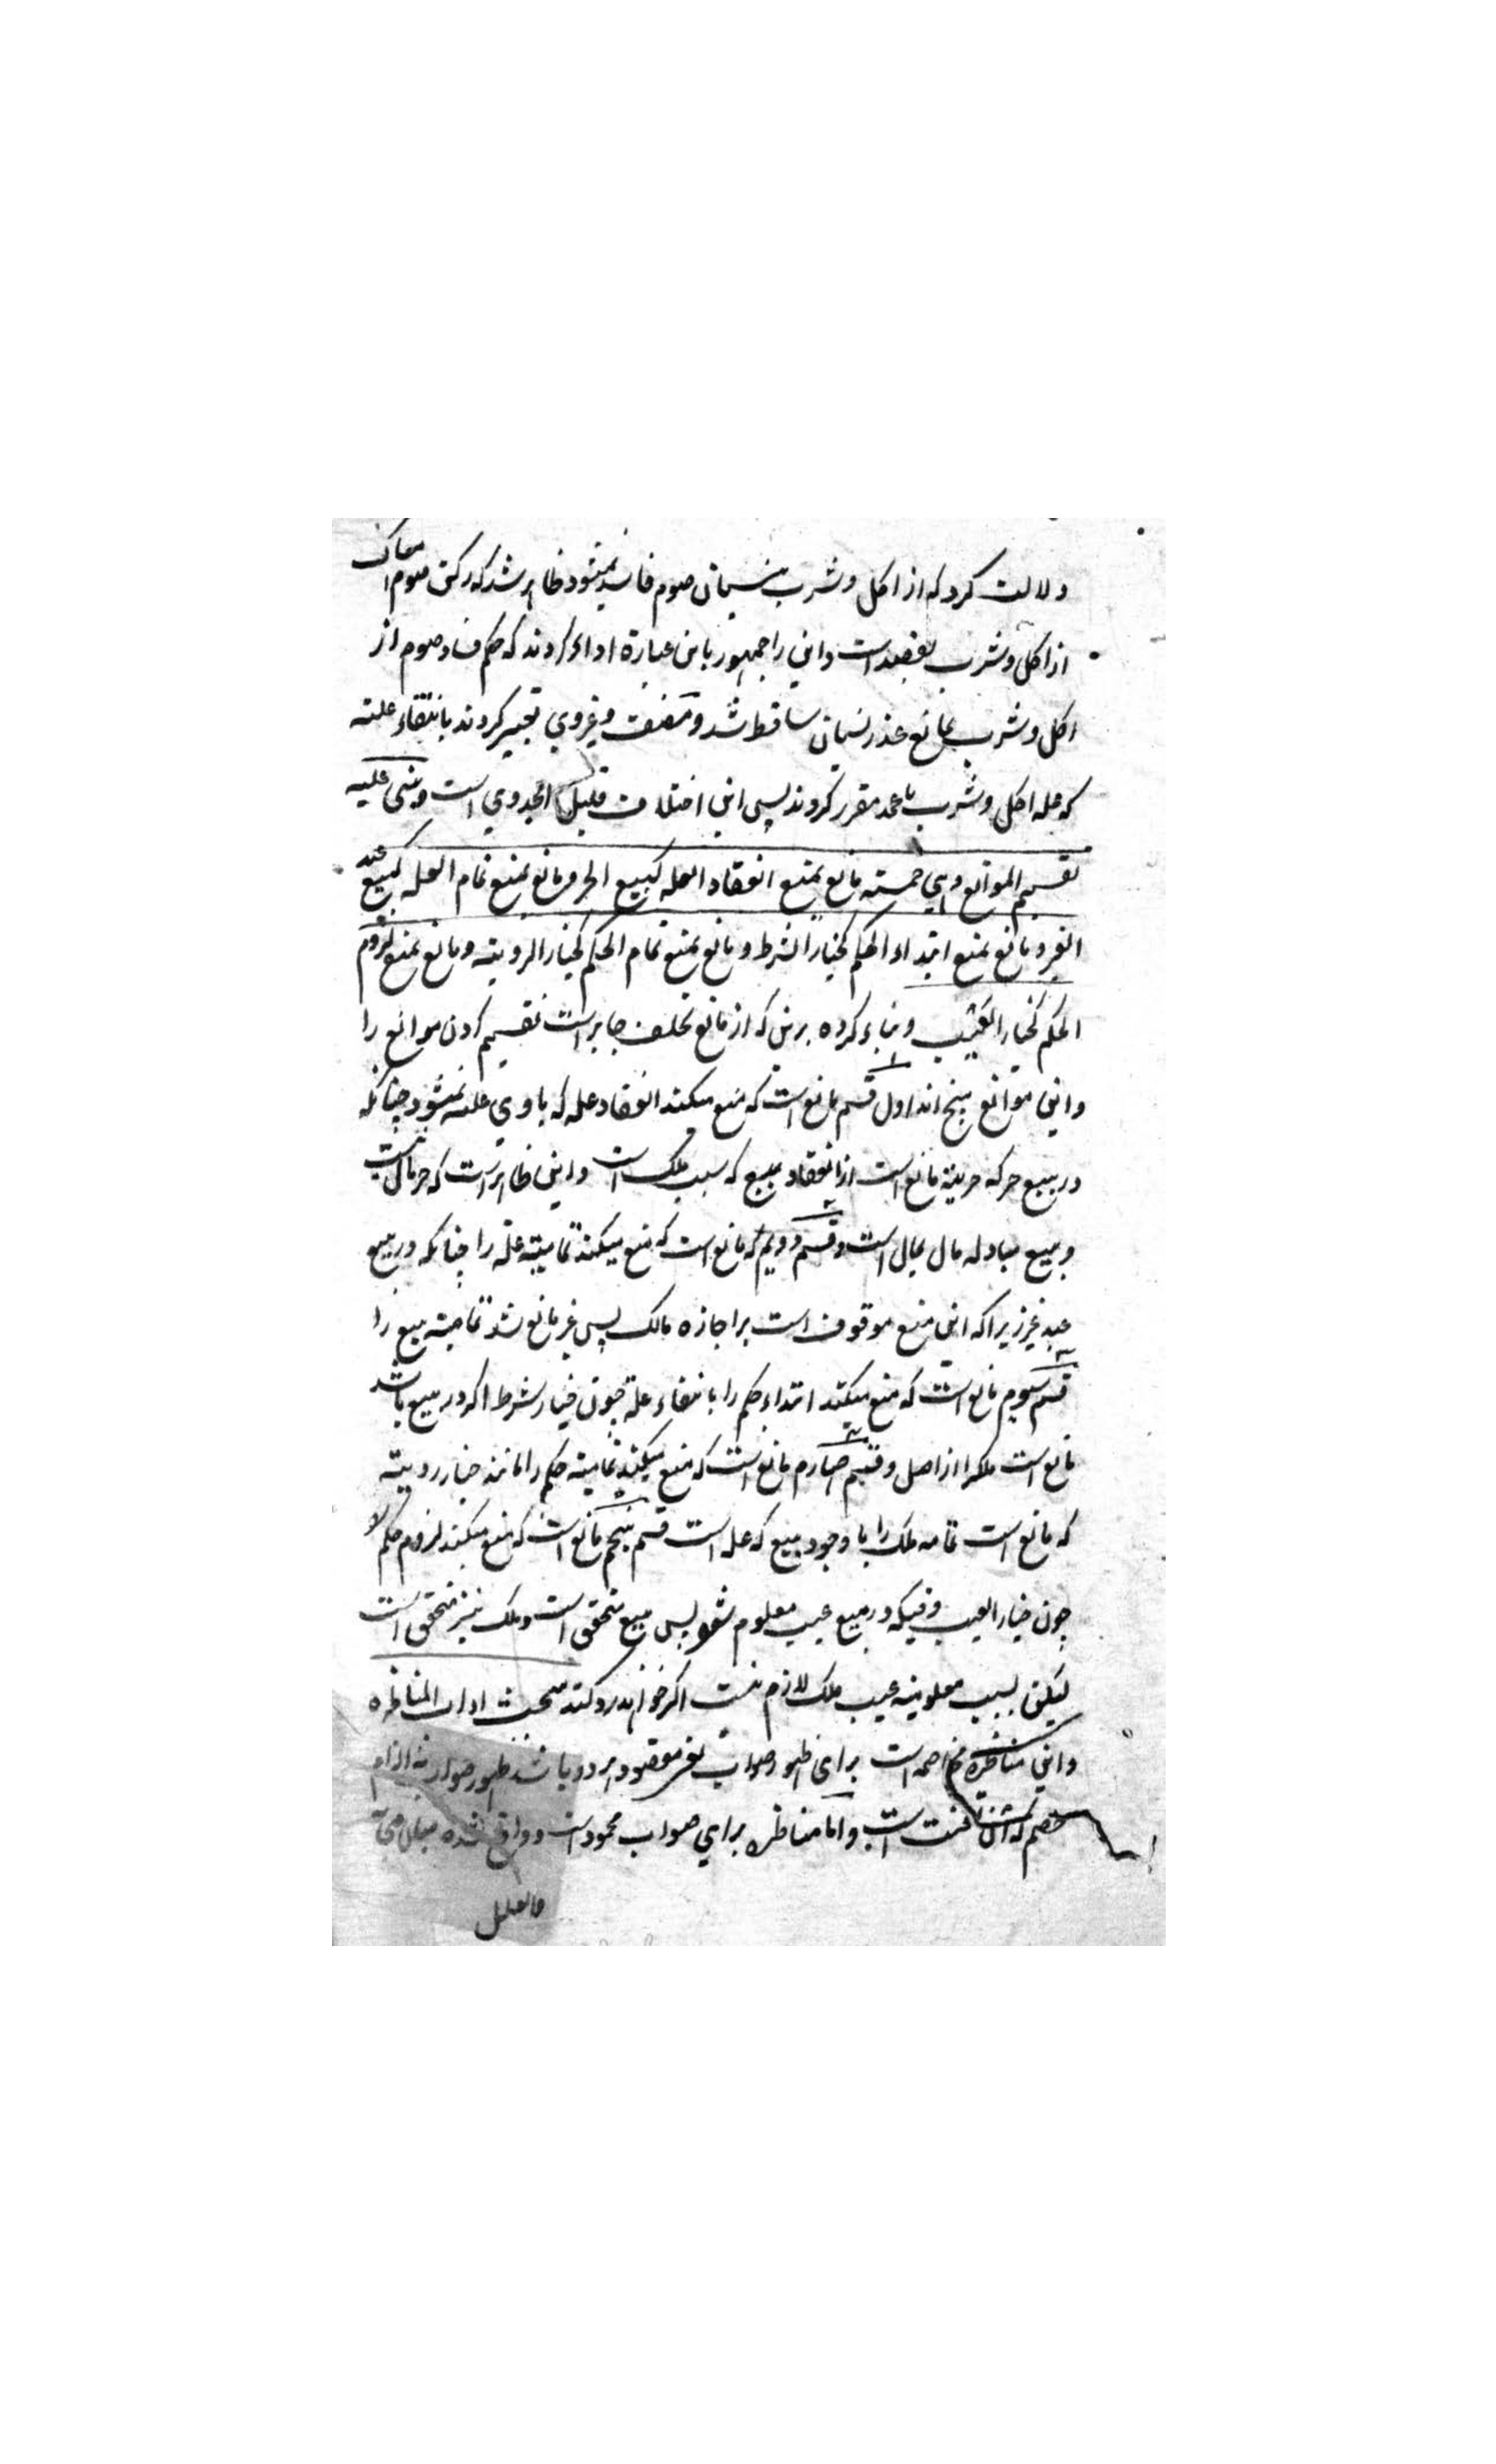 دلالت کرد که از اکل و شرب بنسیان صوم فاسد نمیشود ظاهر شد که رکن صوم امساک
از اکل و شرب بقصد است و این را جمهور باین عبارة اداء کردند که حکم فساد صوم از
اکل و شرب بمانع عذر نسیان ساقط شد و مصنف و غیروی تعبیر کردند بانتفاء علته
که عله اکل و شرب با عمد مقرر کردند پس این اختلاف قلیل الجدوی است و بنی علیه
تقسیم الموانع وهی خمسته مانع یمنع انعقاد العله کبیع الحر و مانع یمنع تمام العله کبیع عبد
الغیر و مانع یمنع ابتداء الحکم کخیار الشرط و مانع یمنع تمام الحکم کخیار الرویته و مانع یمنع لزوم
الحکم کخیار العیب و بناء کرده برین که از مانع تخلف جایز است تقسیم کردن موانع را
و این موانع پنج اند اول قسم مانع است که منع میکند انعقاد عله که با وی علته نمیشود چنانکه
در بیع حر که حریته مانع است از انعقاد بیع که سبب ملک است و این ظاهر است که حر مال نیست
و بیع مبادله مال بمال است و قسم دویم که مانع است که منع میکند تمامیته علة را چنانکه در بیع
عبد غیر زیرا که این منع موقوف است بر اجازه مالک پس غیر مانع شد تمامیته بیع را
قسم سیوم مانع است که منع میکند ابتداء حکم را بانتفاء علة چون خیار شرط اگر در بیع باشد
مانع است ملک را از اصل و قسم چهارم مانع است که منع میکند تمامیته حکم را مانند خیار رویته
که مانع است تمامه ملک را با وجود بیع که عله است قسم پنجم مانع است که منع میکند لزوم حکم را
چون خیار العیب وقتیکه در بیع عیب معلوم شود پس بیع متحقق است و ملک نیز متحقق است
لیکن بسبب معلومیته عیب ملک لازم نیست اگر خواهد رد کند مبحث اداب المناظره
و این مناظره مخاصمه است برای اظهور صواب یعنی مقصود هر دو باشد ظهور صواب نه الزام
خصم که آن فتنت است و اما مناظره برای صواب محمود است و واقع شده میان
والعلل